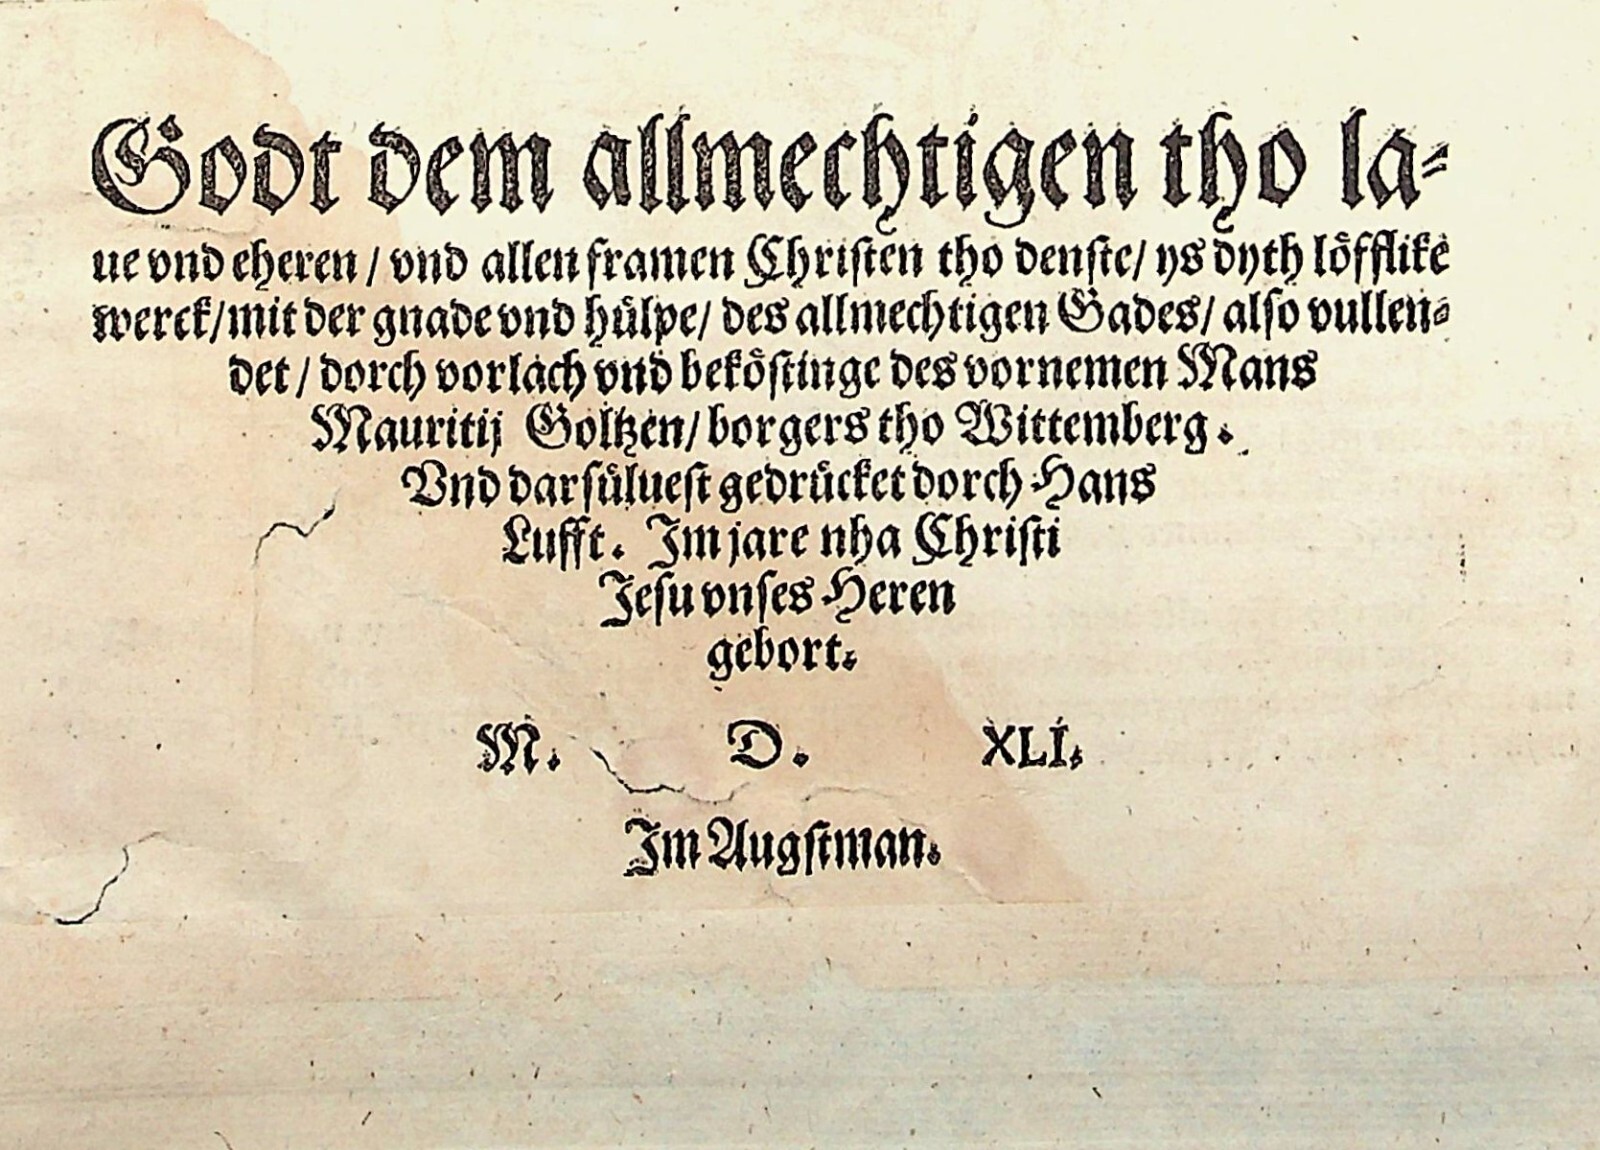 Godt dem allmechtigen tho la⸗
ue vnd eheren / vnd allen framen Christen tho denste / ys dyth löfflike
werck / mit der gnade vnd hülpe / des allmechtigen Gades / also vullen⸗
det / dorch vorlach vnd beköstinge des vornemen Mans
Mauritij Goltzen / borgers tho Wittemberg.
Vnd darsüluest gedrücket dorch Hans
Lufft. Im jare nha Christi
Jesu vnses Heren
gebort.
M. D. XLI.
Im Augstman.